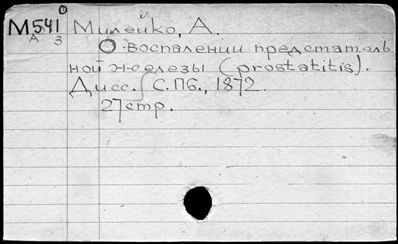 М541 О Милейко, А.
А 3 О воспалении предстатель
ной железы (prostatitis).
Дисс. С.Пб., 1872.
27стр.